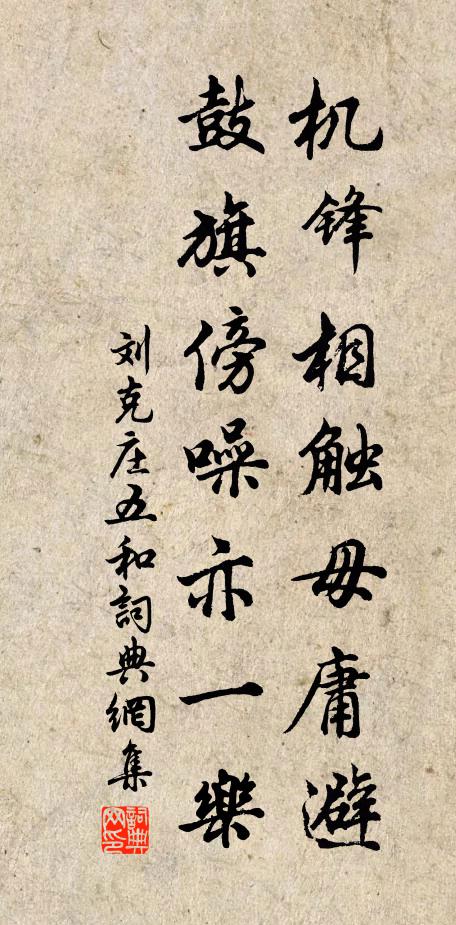 机锋相触毋庸避
鼓旗傍噪亦一樂
刘克庄五和詞典網集
詞典网印